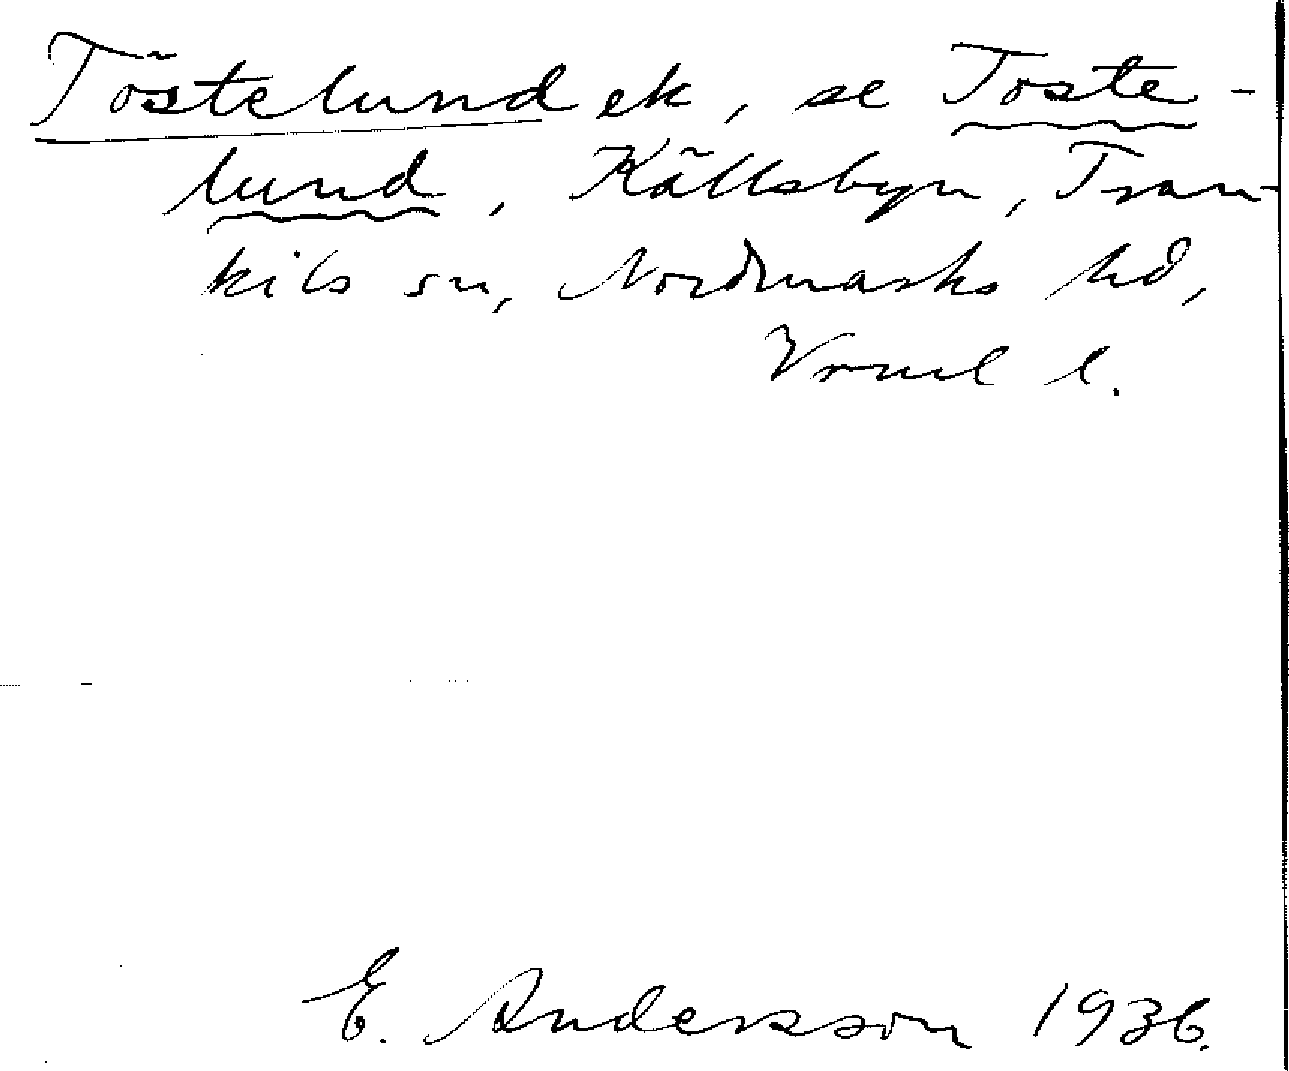 Töstelund ek, se Toste-
lund, Källsbyn, Tran-
kils sn, Nordmarks hd,
Vrml l.
E. Andersson 1936.